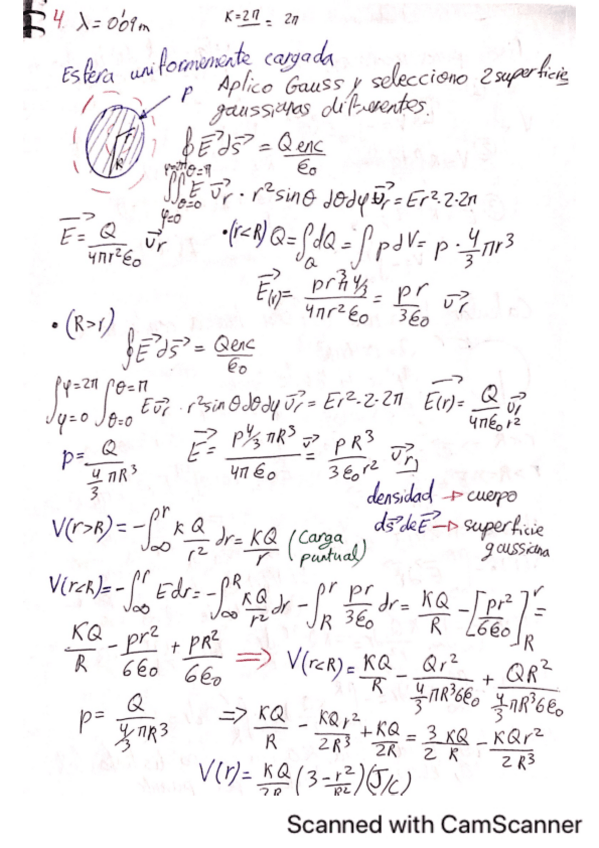 4. λ = 0'09m K=2π = 2π
Esfera uniformemente cargada
Aplico Gauss y selecciono 2 superficies
gaussianas diferentes.
ρ
R
∮E⃗ds⃗ = Qenc/ε₀
∬ E u⃗r · r² sinθ dθdφ u⃗r = Er²·2·2π
φ=0 θ=0 θ=π
E⃗ = Q/4πr²ε₀ u⃗r
• (r<R) Q = ∫dQ = ∫ρdV = ρ · 4/3 πr³
E⃗(r) = ρr³π4/3 / 4πr²ε₀ = ρr/3ε₀ u⃗r
• (R>r)
∮E⃗ds⃗ = Qenc/ε₀
∫φ=0 φ=2π ∫θ=0 θ=π Eu⃗r · r² sinθdθdφ u⃗r = Er²·2·2π E⃗(r) = Q/4πε₀r² u⃗r
ρ = Q / 4/3 πR³ E⃗ = ρ4/3πR³ / 4πε₀ u⃗ = ρR³/3ε₀r² u⃗r
densidad → cuerpo
ds⃗ de E⃗ → superficie
gaussiana
V(r>R) = -∫∞ r K Q/r² dr = KQ/r (Carga
puntual)
V(r<R) = -∫∞ r Edr = -∫∞ R KQ/r² dr - ∫R r ρr/3ε₀ dr = KQ/R - [ρr²/6ε₀]R r =
KQ/R - ρr²/6ε₀ + ρR²/6ε₀ ⇒ V(r<R) = KQ/R - Qr² / 4/3πR³6ε₀ + QR² / 4/3πR³6ε₀
ρ = Q / 4/3 πR³ ⇒ KQ/R - KQr²/2R³ + KQ/2R = 3/2 KQ/R - KQr²/2R³
V(r) = KQ/2R (3 - r²/R²) (J/C)
Scanned with CamScanner